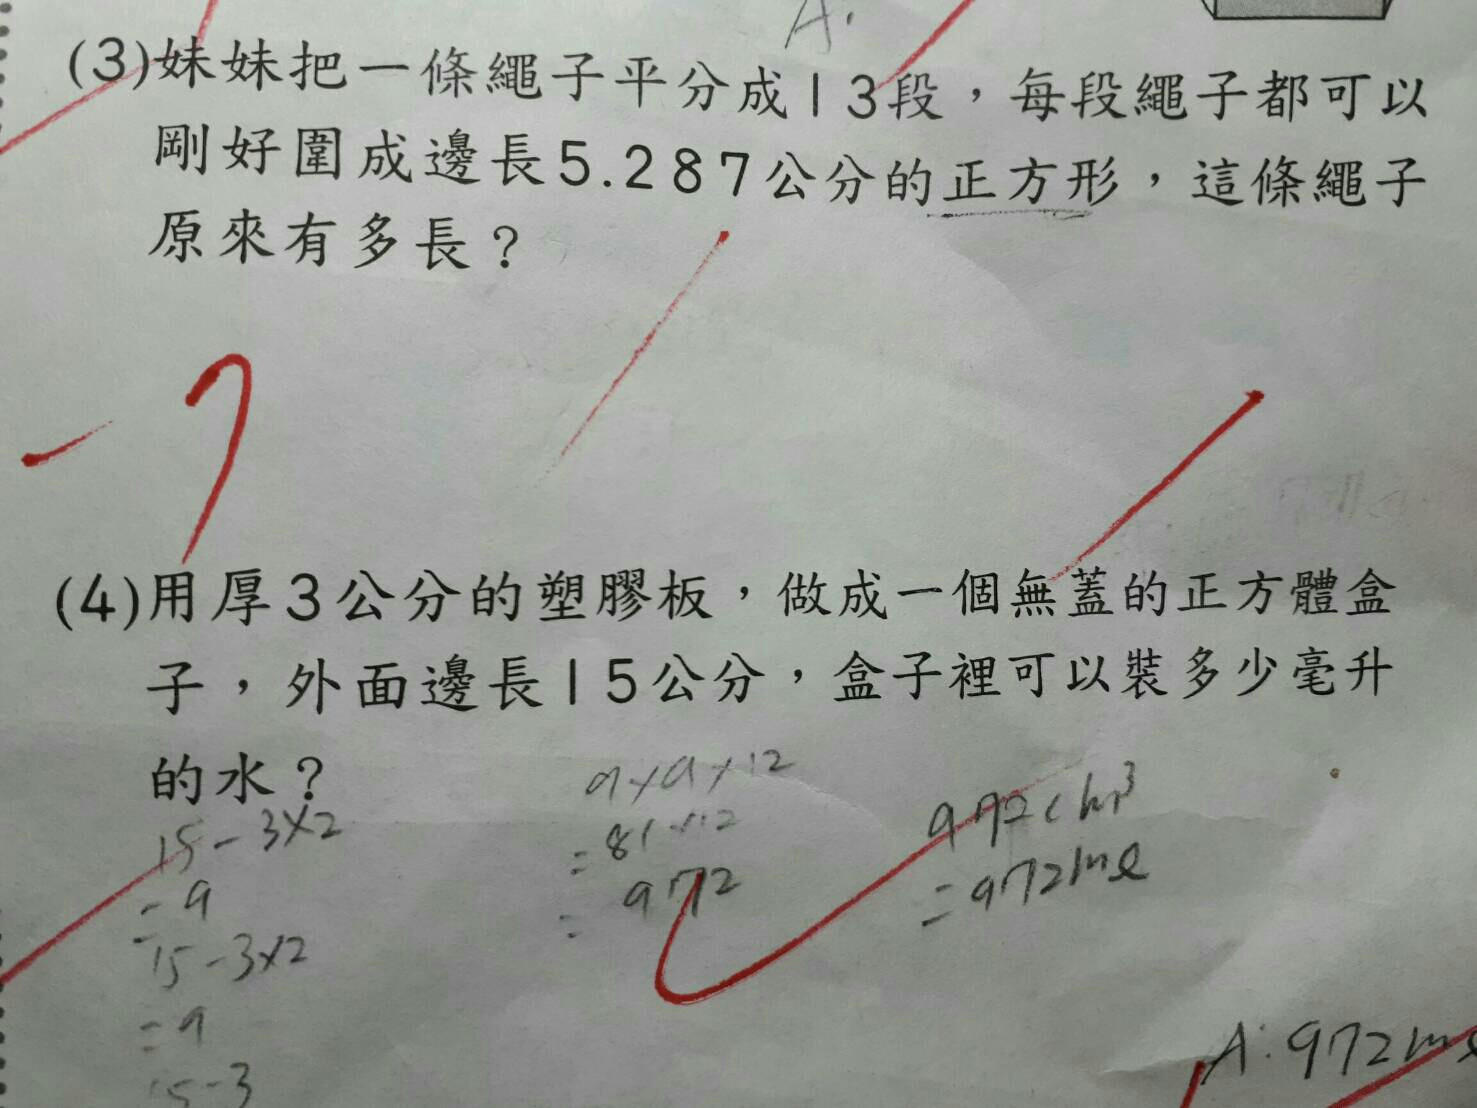 A:
(3)妹妹把一條繩子平分成13段，每段繩子都可以
剛好圍成邊長5.287公分的正方形，這條繩子
原來有多長？
-7
(4)用厚3公分的塑膠板，做成一個無蓋的正方體盒
子，外面邊長15公分，盒子裡可以裝多少毫升
的水？
15-3×2
=9
15-3×2
=9
15-3
9×9×12
=81×12
=972
972cm³
=972mℓ
A:972mℓ